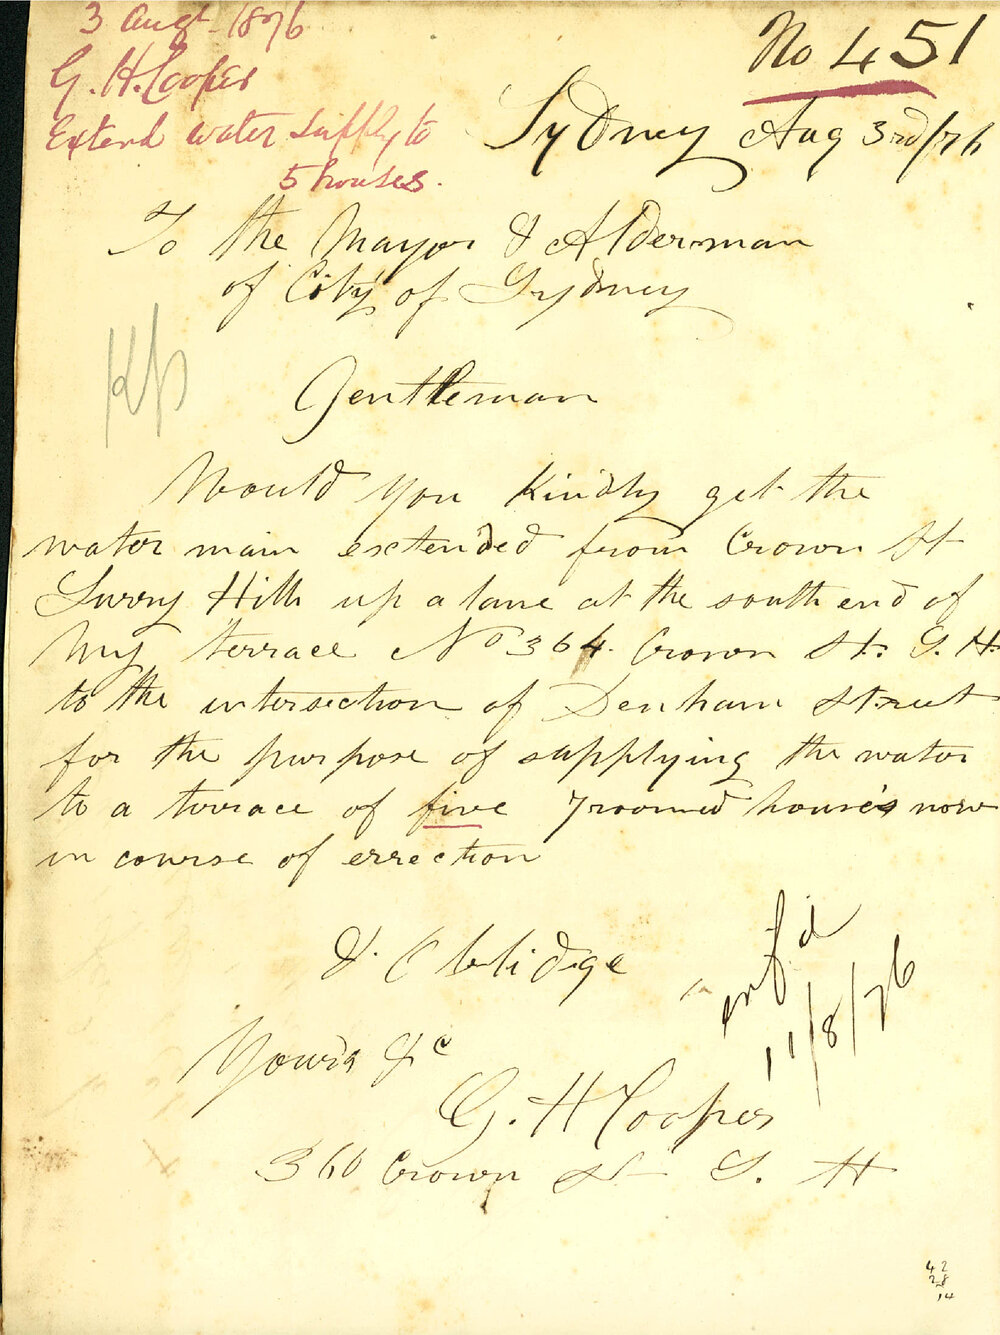 3 Augt 1876
G. H. Cooper
Extend water supply to
5 houses.
No 451
Sydney Aug 3rd/76
To the Mayor & Alderman
of City of Sydney
Gentleman
Would you Kindly get the
water main extended from Crown St
Surry Hills up a lane at the south end of
My terrace No 364. Crown St. S. H.
to the intersection of Denham Street
for the purpose of supplying the water
to a terrace of five 7 roomed house's now
in course of errection
& Oblidge
Your's &c
G. H Cooper
360 Crown St S. H
11/8/76
42
28
14